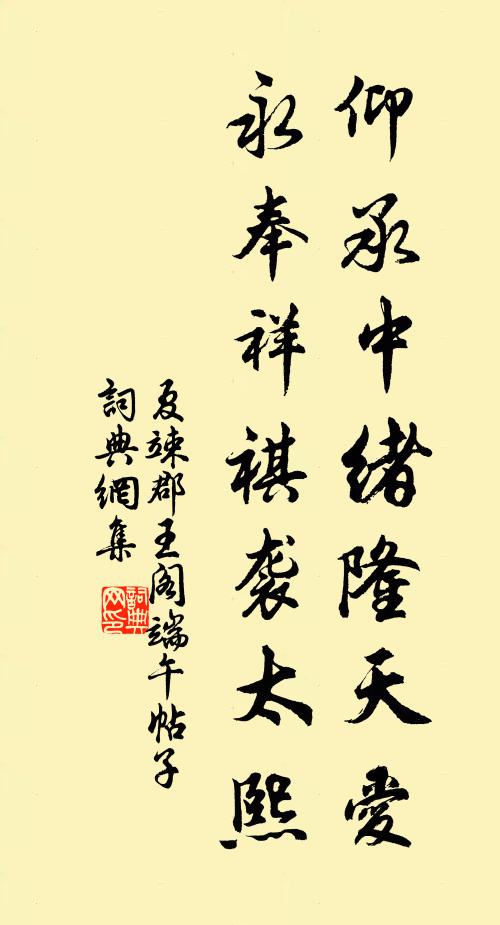 仰承中緒隆天愛
永奉祥祺袭太熙
夏竦郡王阁端午帖子
詞典網集
詞典网印